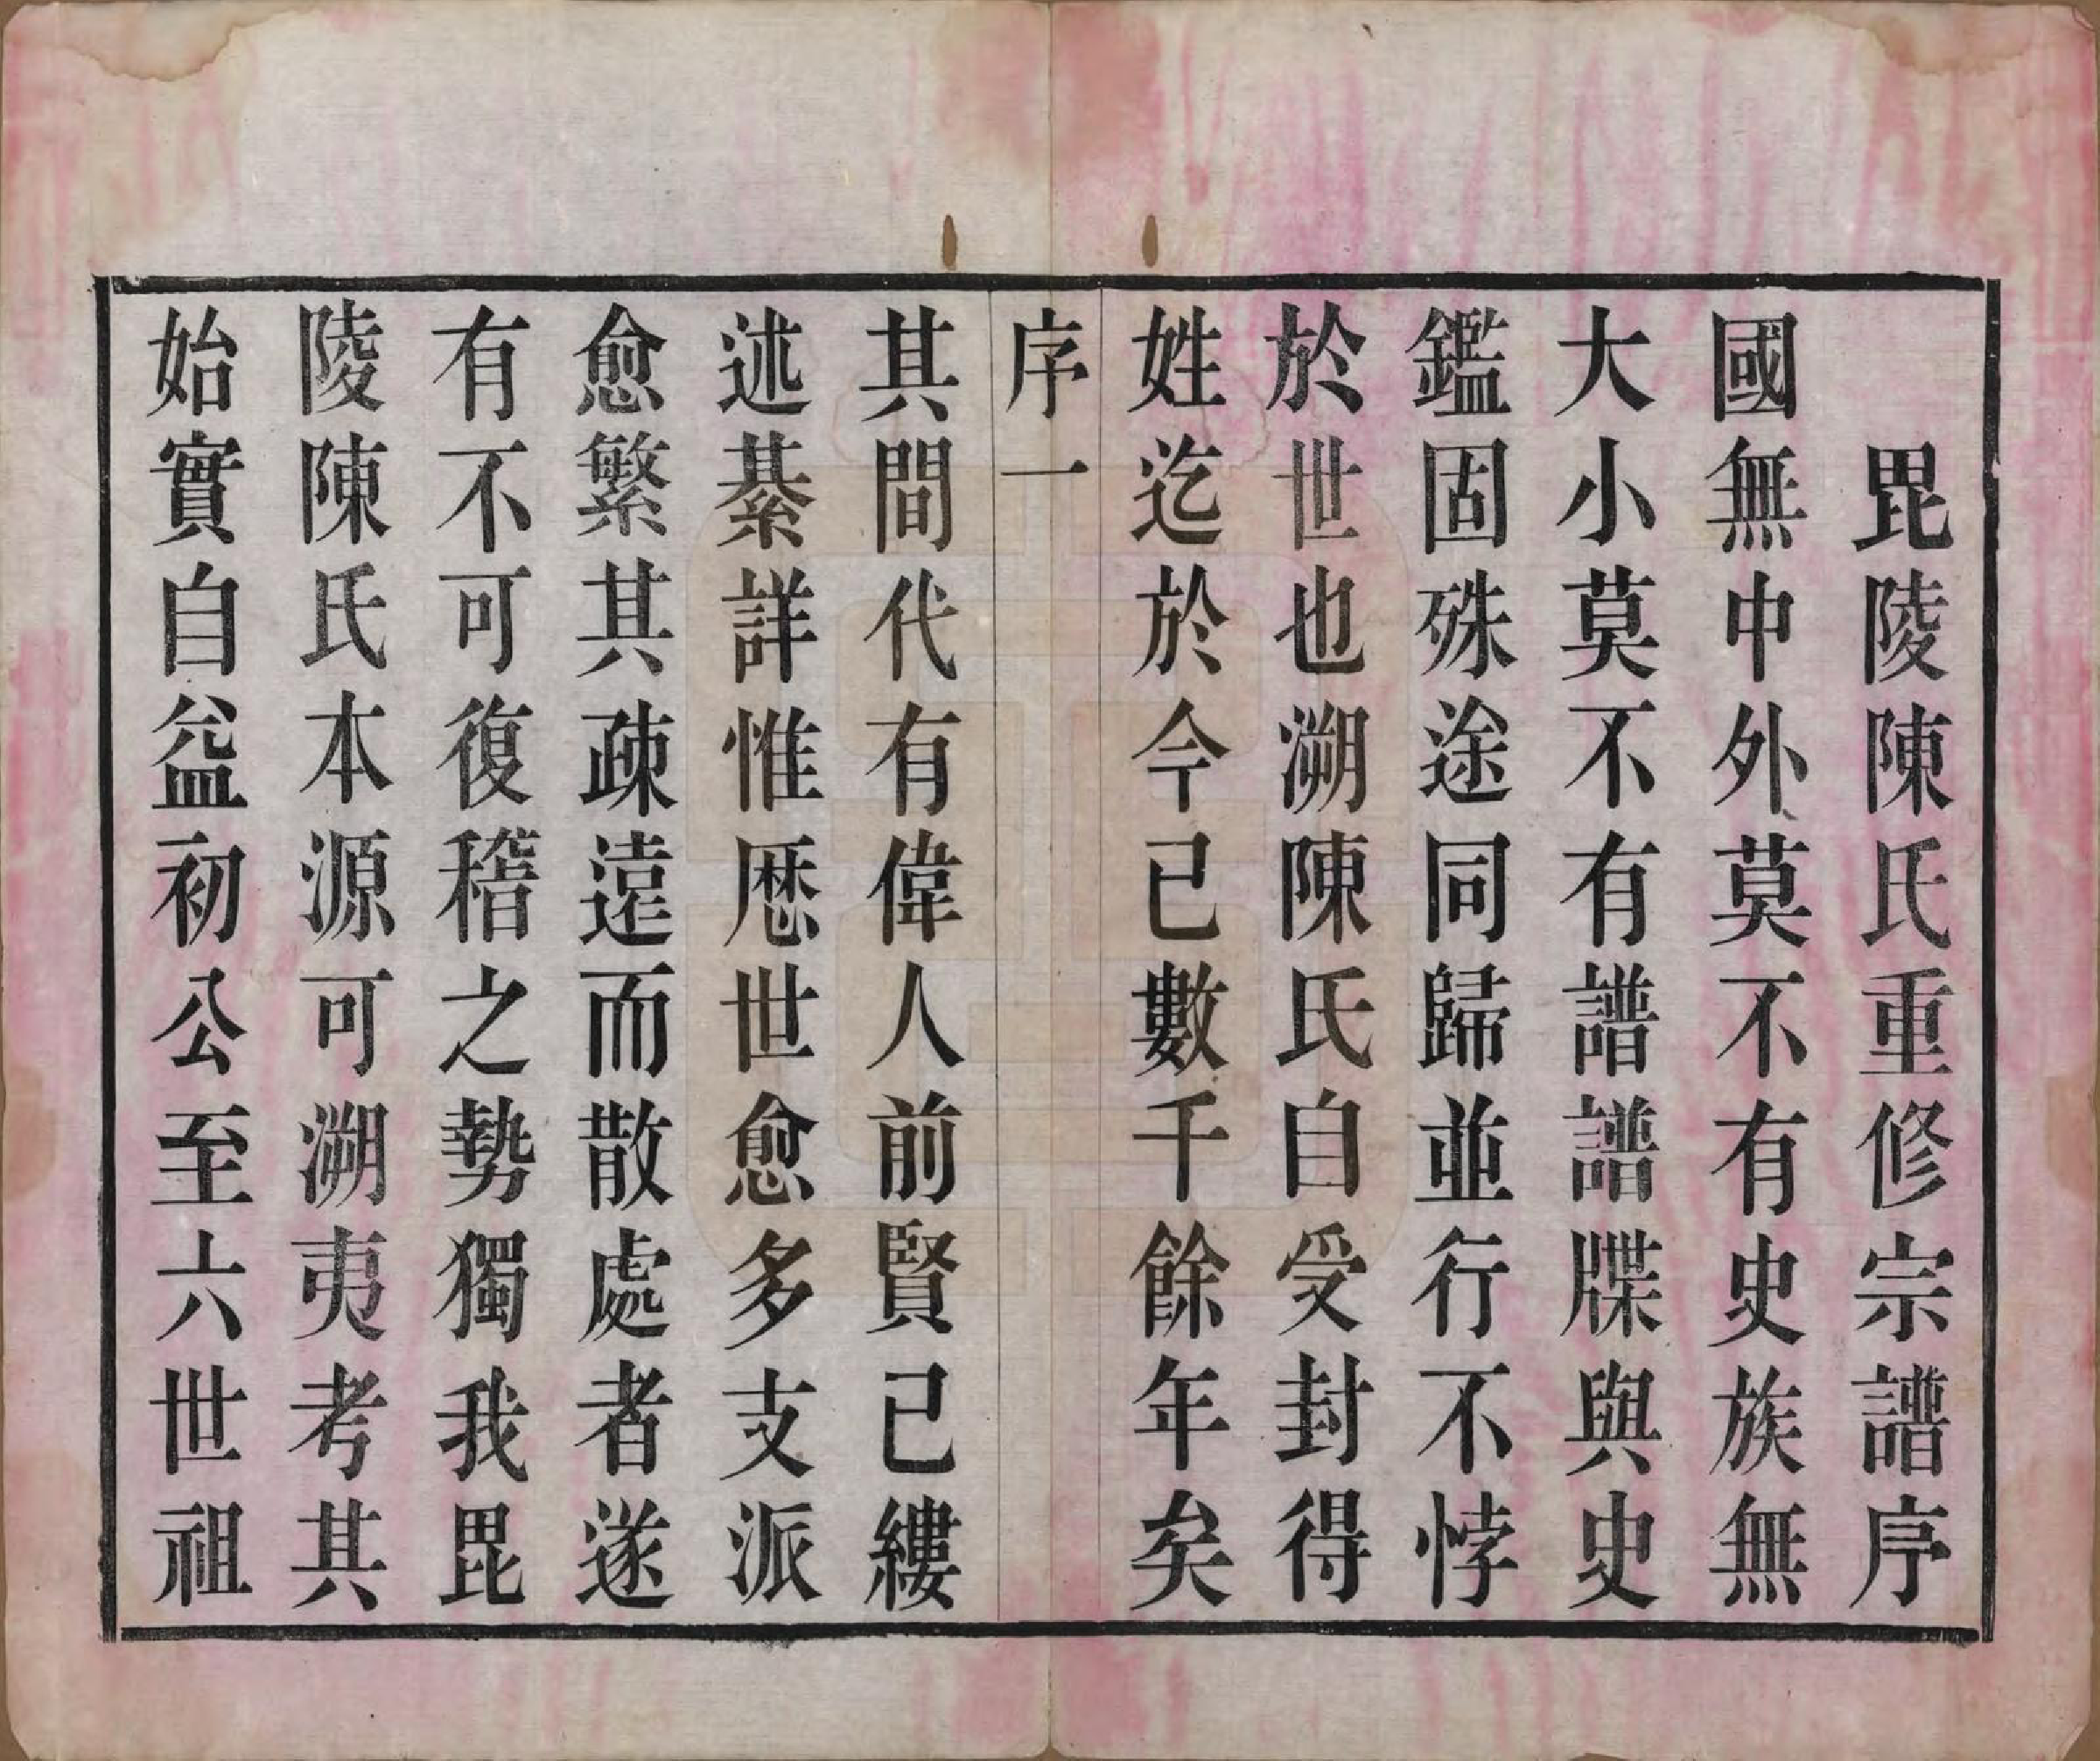 毘陵陳氏重修宗譜序
國無中外莫不有史族無
大小莫不有譜譜牒與史
鑑固殊途同歸並行不悖
於世也溯陳氏自受封得
姓迄於今已數千餘年矣
序一
其間代有偉人前賢已縷
述綦詳惟厯世愈多支派
愈繁其疎遠而散處者遂
有不可復稽之勢獨我毘
陵陳氏本源可溯夷考其
始實自益初公至六世祖